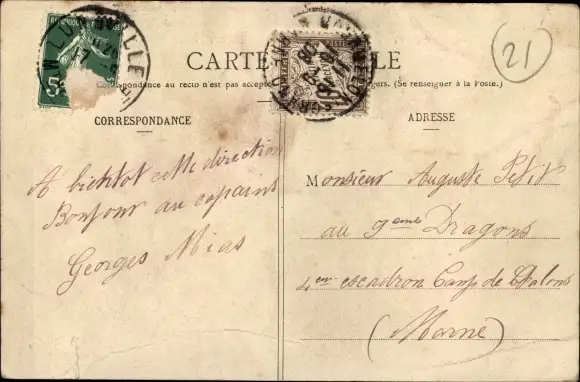 CARTE POSTALE
Correspondance au recto n'est pas acceptée gers. (Se renseigner à la Poste.)
21
5
LUNÉVILLE
CORRESPONDANCE
ADRESSE
A bientot cette direction
Bonjour au copains
Georges Mias
Monsieur Auguste Petit
au 9eme Dragons
4em escadron Camp de Chalons
(Marne)